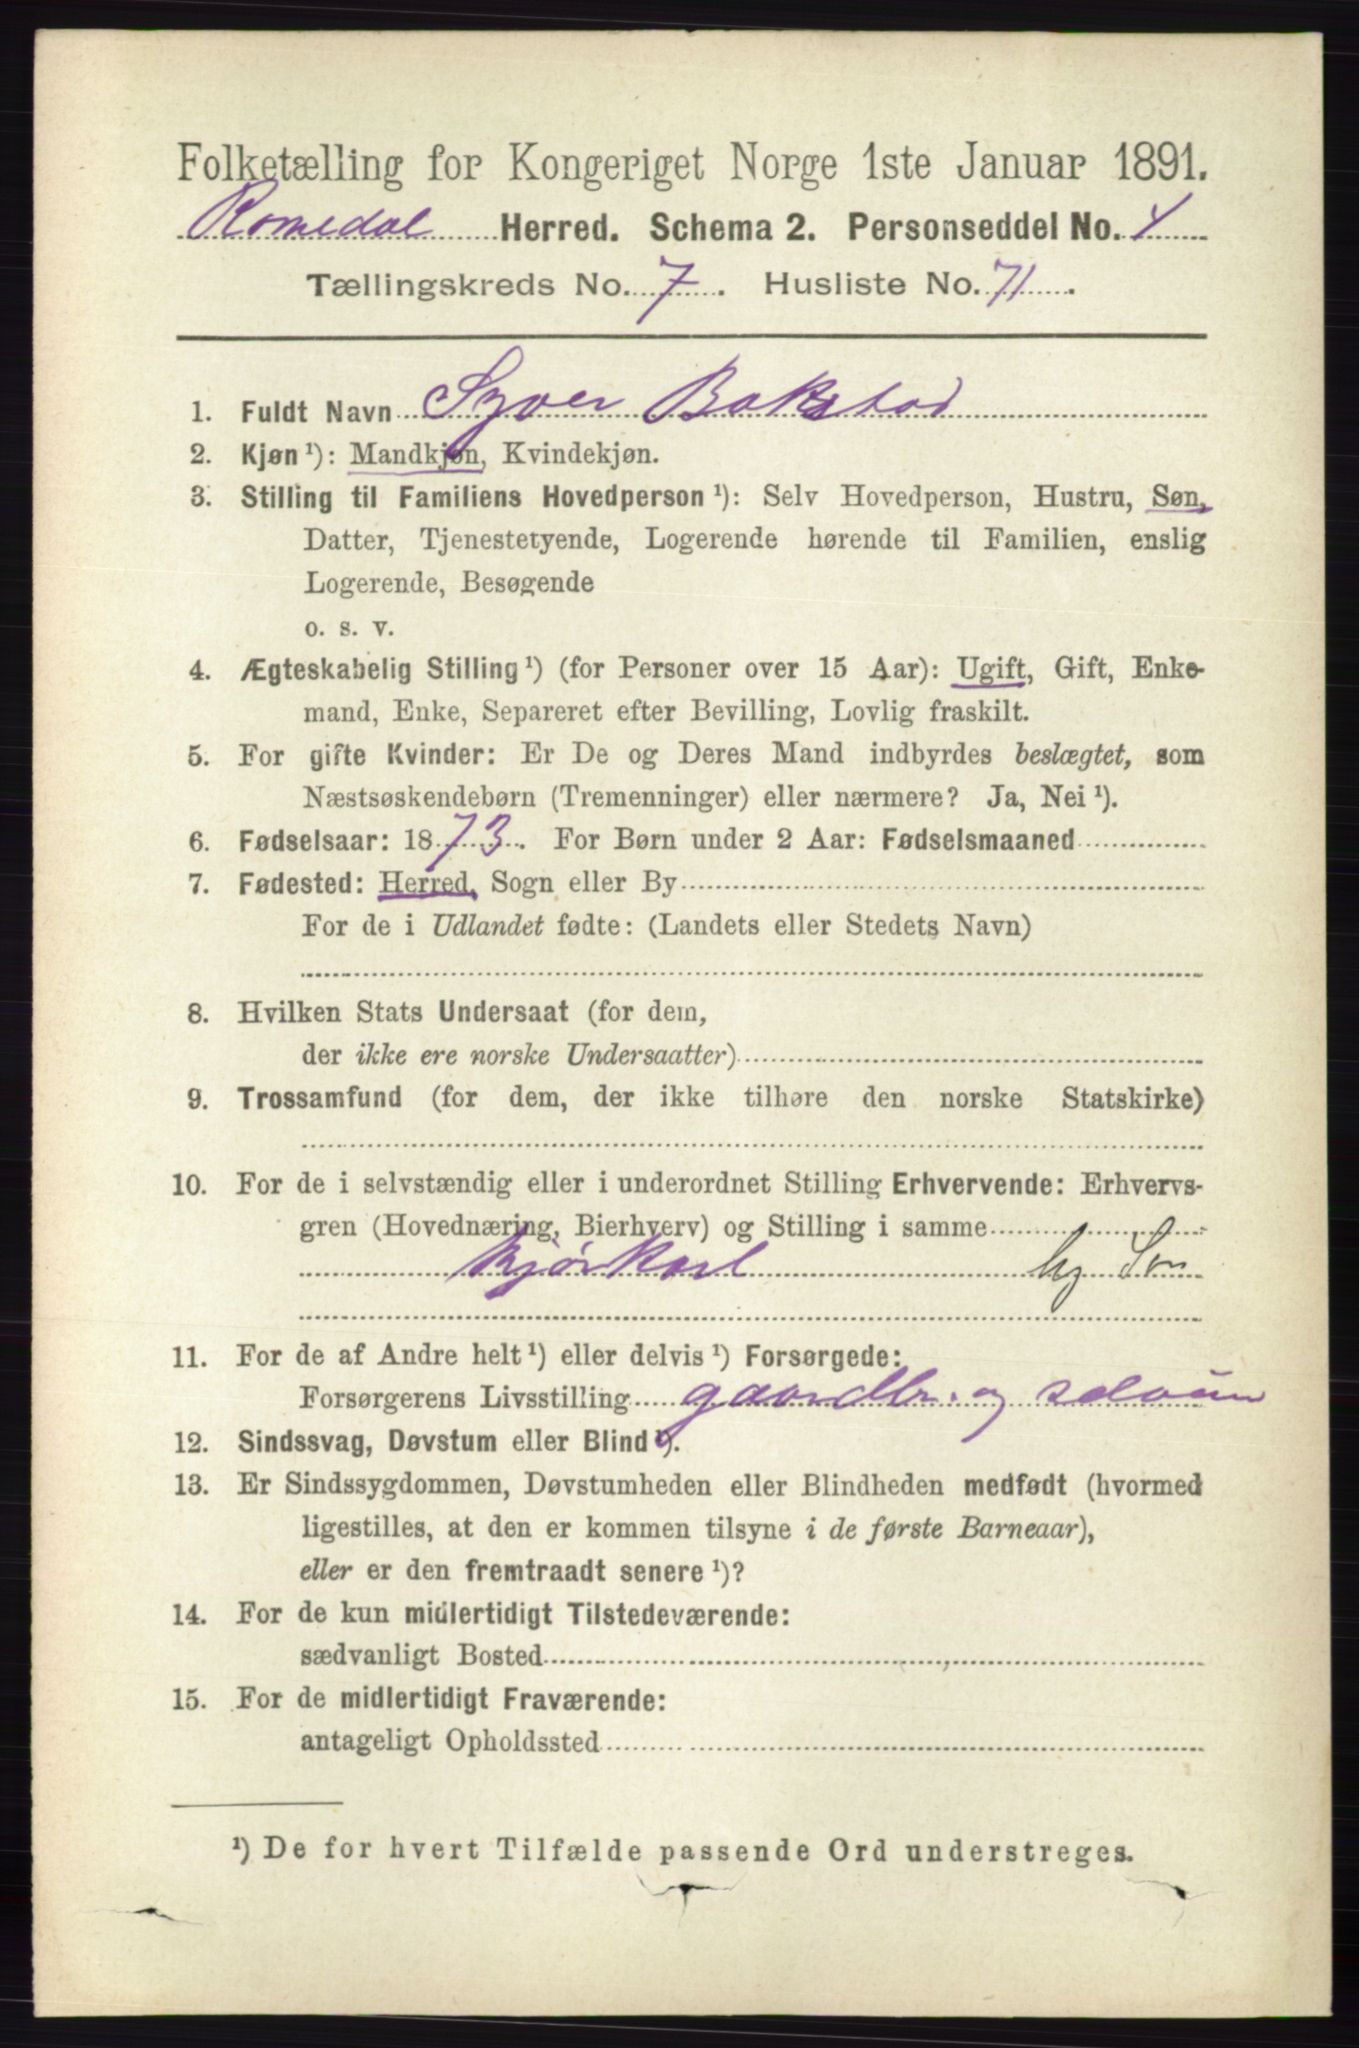 Folketælling for Kongeriget Norge 1ste Januar 1891.
Romedal Herred. Schema 2. Personseddel No. 4
Tællingskreds No. 7. Husliste No. 71.
1. Fuldt Navn Syver Bakstad
2. Kjøn ¹): Mandkjøn, Kvindekjøn.
3. Stilling til Familiens Hovedperson ¹): Selv Hovedperson, Hustru, Søn,
Datter, Tjenestetyende, Logerende hørende til Familien, enslig
Logerende, Besøgende
o. s. v.
4. Ægteskabelig Stilling ¹) (for Personer over 15 Aar): Ugift, Gift, Enke-
mand, Enke, Separeret efter Bevilling, Lovlig fraskilt.
5. For gifte Kvinder: Er De og Deres Mand indbyrdes beslægtet, som
Næstsøskendebørn (Tremenninger) eller nærmere? Ja, Nei ¹).
6. Fødselsaar: 1873. For Børn under 2 Aar: Fødselsmaaned
7. Fødested: Herred, Sogn eller By
For de i Udlandet fødte: (Landets eller Stedets Navn)
8. Hvilken Stats Undersaat (for dem,
der ikke ere norske Undersaatter)
9. Trossamfund (for dem, der ikke tilhøre den norske Statskirke)
10. For de i selvstændig eller i underordnet Stilling Erhvervende: Erhvervs-
gren (Hovednæring, Bierhverv) og Stilling i samme
kjørkarl hj Søn
11. For de af Andre helt ¹) eller delvis ¹) Forsørgede:
Forsørgerens Livsstilling gaardbr. og selveier
12. Sindssvag, Døvstum eller Blind ¹).
13. Er Sindssygdommen, Døvstumheden eller Blindheden medfødt (hvormed
ligestilles, at den er kommen tilsyne i de første Barneaar),
eller er den fremtraadt senere ¹)?
14. For de kun midlertidigt Tilstedeværende:
sædvanligt Bosted
15. For de midlertidigt Fraværende:
antageligt Opholdssted
¹) De for hvert Tilfælde passende Ord understreges.